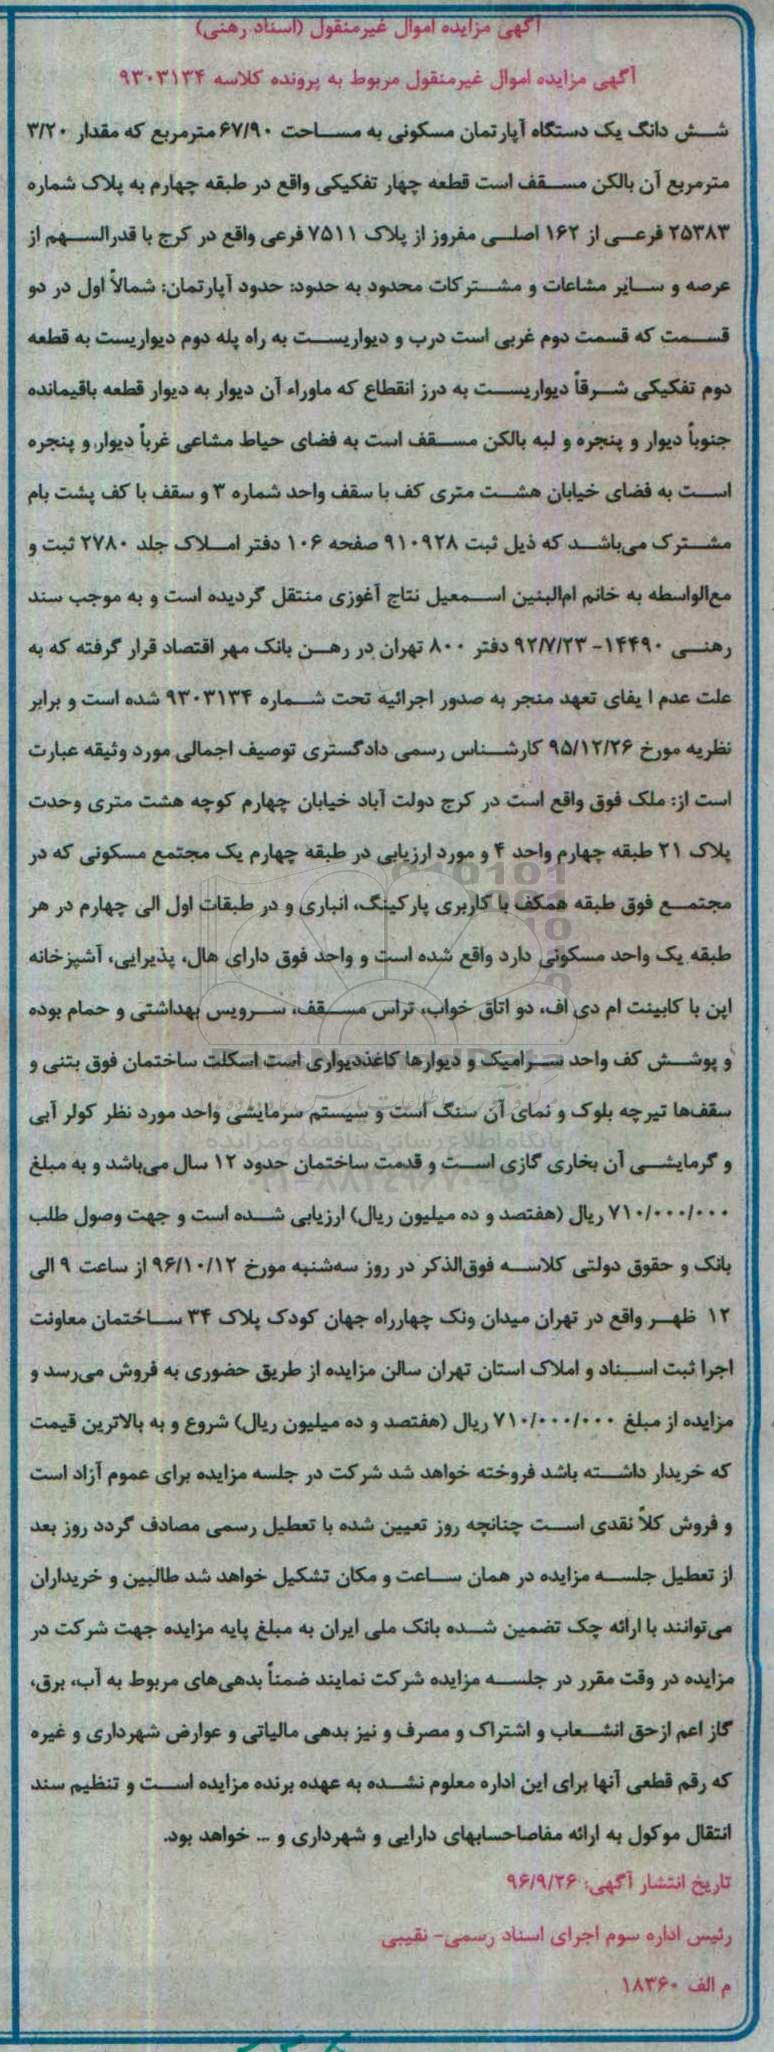 آگهی مزایده اموال غیرمنقول (اسناد رهنی)
آگهی مزایده اموال غیرمنقول مربوط به پرونده کلاسه ۹۳۰۳۱۳۴
شش دانگ یک دستگاه آپارتمان مسکونی به مساحت ۶۷/۹۰ مترمربع که مقدار ۳/۲۰
مترمربع آن بالکن مسقف است قطعه چهار تفکیکی واقع در طبقه چهارم به پلاک شماره
۲۵۳۸۳ فرعی از ۱۶۲ اصلی مفروز از پلاک ۷۵۱۱ فرعی واقع در کرج با قدرالسهم از
عرصه و سایر مشاعات و مشترکات محدود به حدود: حدود آپارتمان: شمالاً اول در دو
قسمت که قسمت دوم غربی است درب و دیواریست به راه پله دوم دیواریست به قطعه
دوم تفکیکی شرقاً دیواریست به درز انقطاع که ماوراء آن دیوار به دیوار قطعه باقیمانده
جنوباً دیوار و پنجره و لبه بالکن مسقف است به فضای حیاط مشاعی غرباً دیوار و پنجره
است به فضای خیابان هشت متری کف با سقف واحد شماره ۳ و سقف با کف پشت بام
مشترک می‌باشد که ذیل ثبت ۹۱۰۹۲۸ صفحه ۱۰۶ دفتر املاک جلد ۲۷۸۰ ثبت و
مع‌الواسطه به خانم ام‌البنین اسمعیل نتاج آغوزی منتقل گردیده است و به موجب سند
رهنی ۱۴۴۹۰- ۹۲/۷/۲۳ دفتر ۸۰۰ تهران در رهن بانک مهر اقتصاد قرار گرفته که به
علت عدم ا یفای تعهد منجر به صدور اجرائیه تحت شماره ۹۳۰۳۱۳۴ شده است و برابر
نظریه مورخ ۹۵/۱۲/۲۶ کارشناس رسمی دادگستری توصیف اجمالی مورد وثیقه عبارت
است از: ملک فوق واقع است در کرج دولت آباد خیابان چهارم کوچه هشت متری وحدت
پلاک ۲۱ طبقه چهارم واحد ۴ و مورد ارزیابی در طبقه چهارم یک مجتمع مسکونی که در
مجتمع فوق طبقه همکف با کاربری پارکینگ، انباری و در طبقات اول الی چهارم در هر
طبقه یک واحد مسکونی دارد واقع شده است و واحد فوق دارای هال، پذیرایی، آشپزخانه
اپن با کابینت ام دی اف، دو اتاق خواب، تراس مسقف، سرویس بهداشتی و حمام بوده
و پوشش کف واحد سرامیک و دیوارها کاغذدیواری است اسکلت ساختمان فوق بتنی و
سقف‌ها تیرچه بلوک و نمای آن سنگ است و سیستم سرمایشی واحد مورد نظر کولر آبی
پایگاه اطلاع رسانی مناقصه و مزایده
و گرمایشی آن بخاری گازی است و قدمت ساختمان حدود ۱۲ سال می‌باشد و به مبلغ
۷۱۰/۰۰۰/۰۰۰ ریال (هفتصد و ده میلیون ریال) ارزیابی شده است و جهت وصول طلب
بانک و حقوق دولتی کلاسه فوق‌الذکر در روز سه‌شنبه مورخ ۹۶/۱۰/۱۲ از ساعت ۹ الی
۱۲ ظهر واقع در تهران میدان ونک چهارراه جهان کودک پلاک ۳۴ ساختمان معاونت
اجرا ثبت اسناد و املاک استان تهران سالن مزایده از طریق حضوری به فروش می‌رسد و
مزایده از مبلغ ۷۱۰/۰۰۰/۰۰۰ ریال (هفتصد و ده میلیون ریال) شروع و به بالاترین قیمت
که خریدار داشته باشد فروخته خواهد شد شرکت در جلسه مزایده برای عموم آزاد است
و فروش کلاً نقدی است چنانچه روز تعیین شده با تعطیل رسمی مصادف گردد روز بعد
از تعطیل جلسه مزایده در همان ساعت و مکان تشکیل خواهد شد طالبین و خریداران
می‌توانند با ارائه چک تضمین شده بانک ملی ایران به مبلغ پایه مزایده جهت شرکت در
مزایده در وقت مقرر در جلسه مزایده شرکت نمایند ضمناً بدهی‌های مربوط به آب، برق،
گاز اعم ازحق انشعاب و اشتراک و مصرف و نیز بدهی مالیاتی و عوارض شهرداری و غیره
که رقم قطعی آنها برای این اداره معلوم نشده به عهده برنده مزایده است و تنظیم سند
انتقال موکول به ارائه مفاصاحسابهای دارایی و شهرداری و ... خواهد بود.
تاریخ انتشار آگهی: ۹۶/۹/۲۶
رئیس اداره سوم اجرای اسناد رسمی- نقیبی
م الف ۱۸۳۶۰